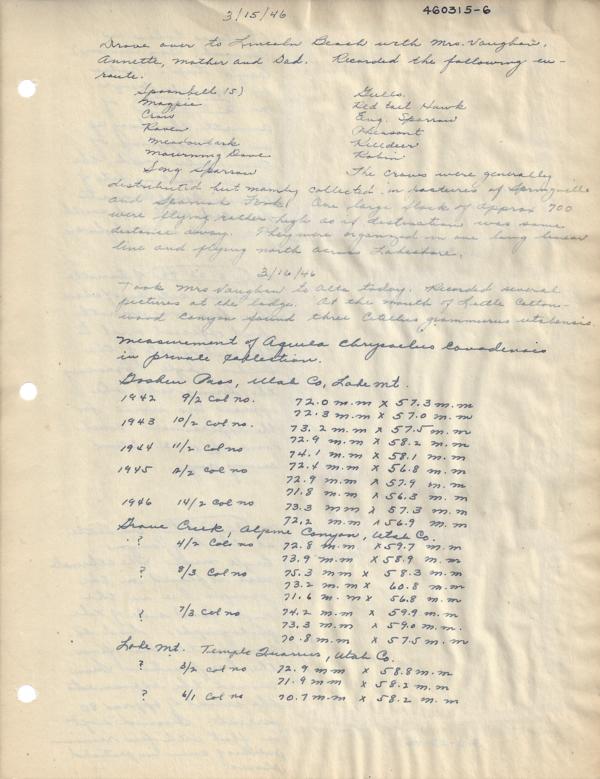 3/15/46
460315-6
Drove over to Lincoln Beach with Mrs. Vaughan,
Annette, Mother and Dad. Recorded the following en-
route.
Spoonbell (5) Gulls
Magpie Red tail Hawk
Crow Eng. Sparrow
Raven Pheasant
Meadowlark Killdeer
Mourning Dove Robin
Song Sparrow The crows were generally
distributed but mainly collected in pastures of Springville
and Spanish Fork. One large flock of approx 700
were flying rather high as if destination was some
distance away. They were organized in one long linear
line and flying north across Lakeshore.
3/16/46
Took Mrs Vaughan to Alta today. Recorded several
pictures at the lodge. At the mouth of Little Cotton-
wood Canyon found three Citellus grammurus utahensis.
Measurement of Aquila Chrysaetus Canadensis
in private collection.
Utah Co, Lake Mt.
1942 9/2 Col no. 72.0 m.m x 57.3 m.m
72.3 m.m x 57.0 m.m
1943 10/2 col no. 73.2 m.m x 57.5 m.m
72.9 m.m x 58.2 m.m
1944 11/2 col no 74.1 m.m x 58.1 m.m
1945 col no 72.4 m.m x 56.8 m.m
72.9 m.m x 57.9 m.m
71.8 m.m x 56.3 m.m
1946 14/2 Col no 73.3 m.m x 57.3 m.m
72.2 m.m x 56.9 m.m
Grove Creek, Alpine Canyon, Utah Co.
? 4/2 Col no 72.8 m.m x 59.7 m.m
73.9 m.m x 58.9 m.m
? 8/3 Col no 75.3 m m x 58.3 m.m
73.2 m.m x 60.8 m.m
71.6 m.m x 56.8 m.m
? 7/3 Col no 74.2 m.m x 59.9 m.m
73.3 m.m x 59.0 m.m.
70.8 m.m x 57.5 m.m
Lake Mt. Temple Quarries, Utah Co.
? 3/2 col no 72.9 m m x 58.8 m.m
71.9 m m x 58.2 m.m
? 6/1 Col no 70.7 m m x 58.2 m.m